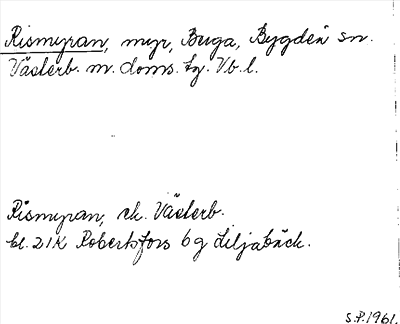 Rismyran, myr, Buga, Bygdeå sn.
Västerb. m. doms. tg. Vb. l.
Rismyran, ek. Västerb.
bl. 21K Robertsfors 6g Liljabäck.
S.P. 1961.